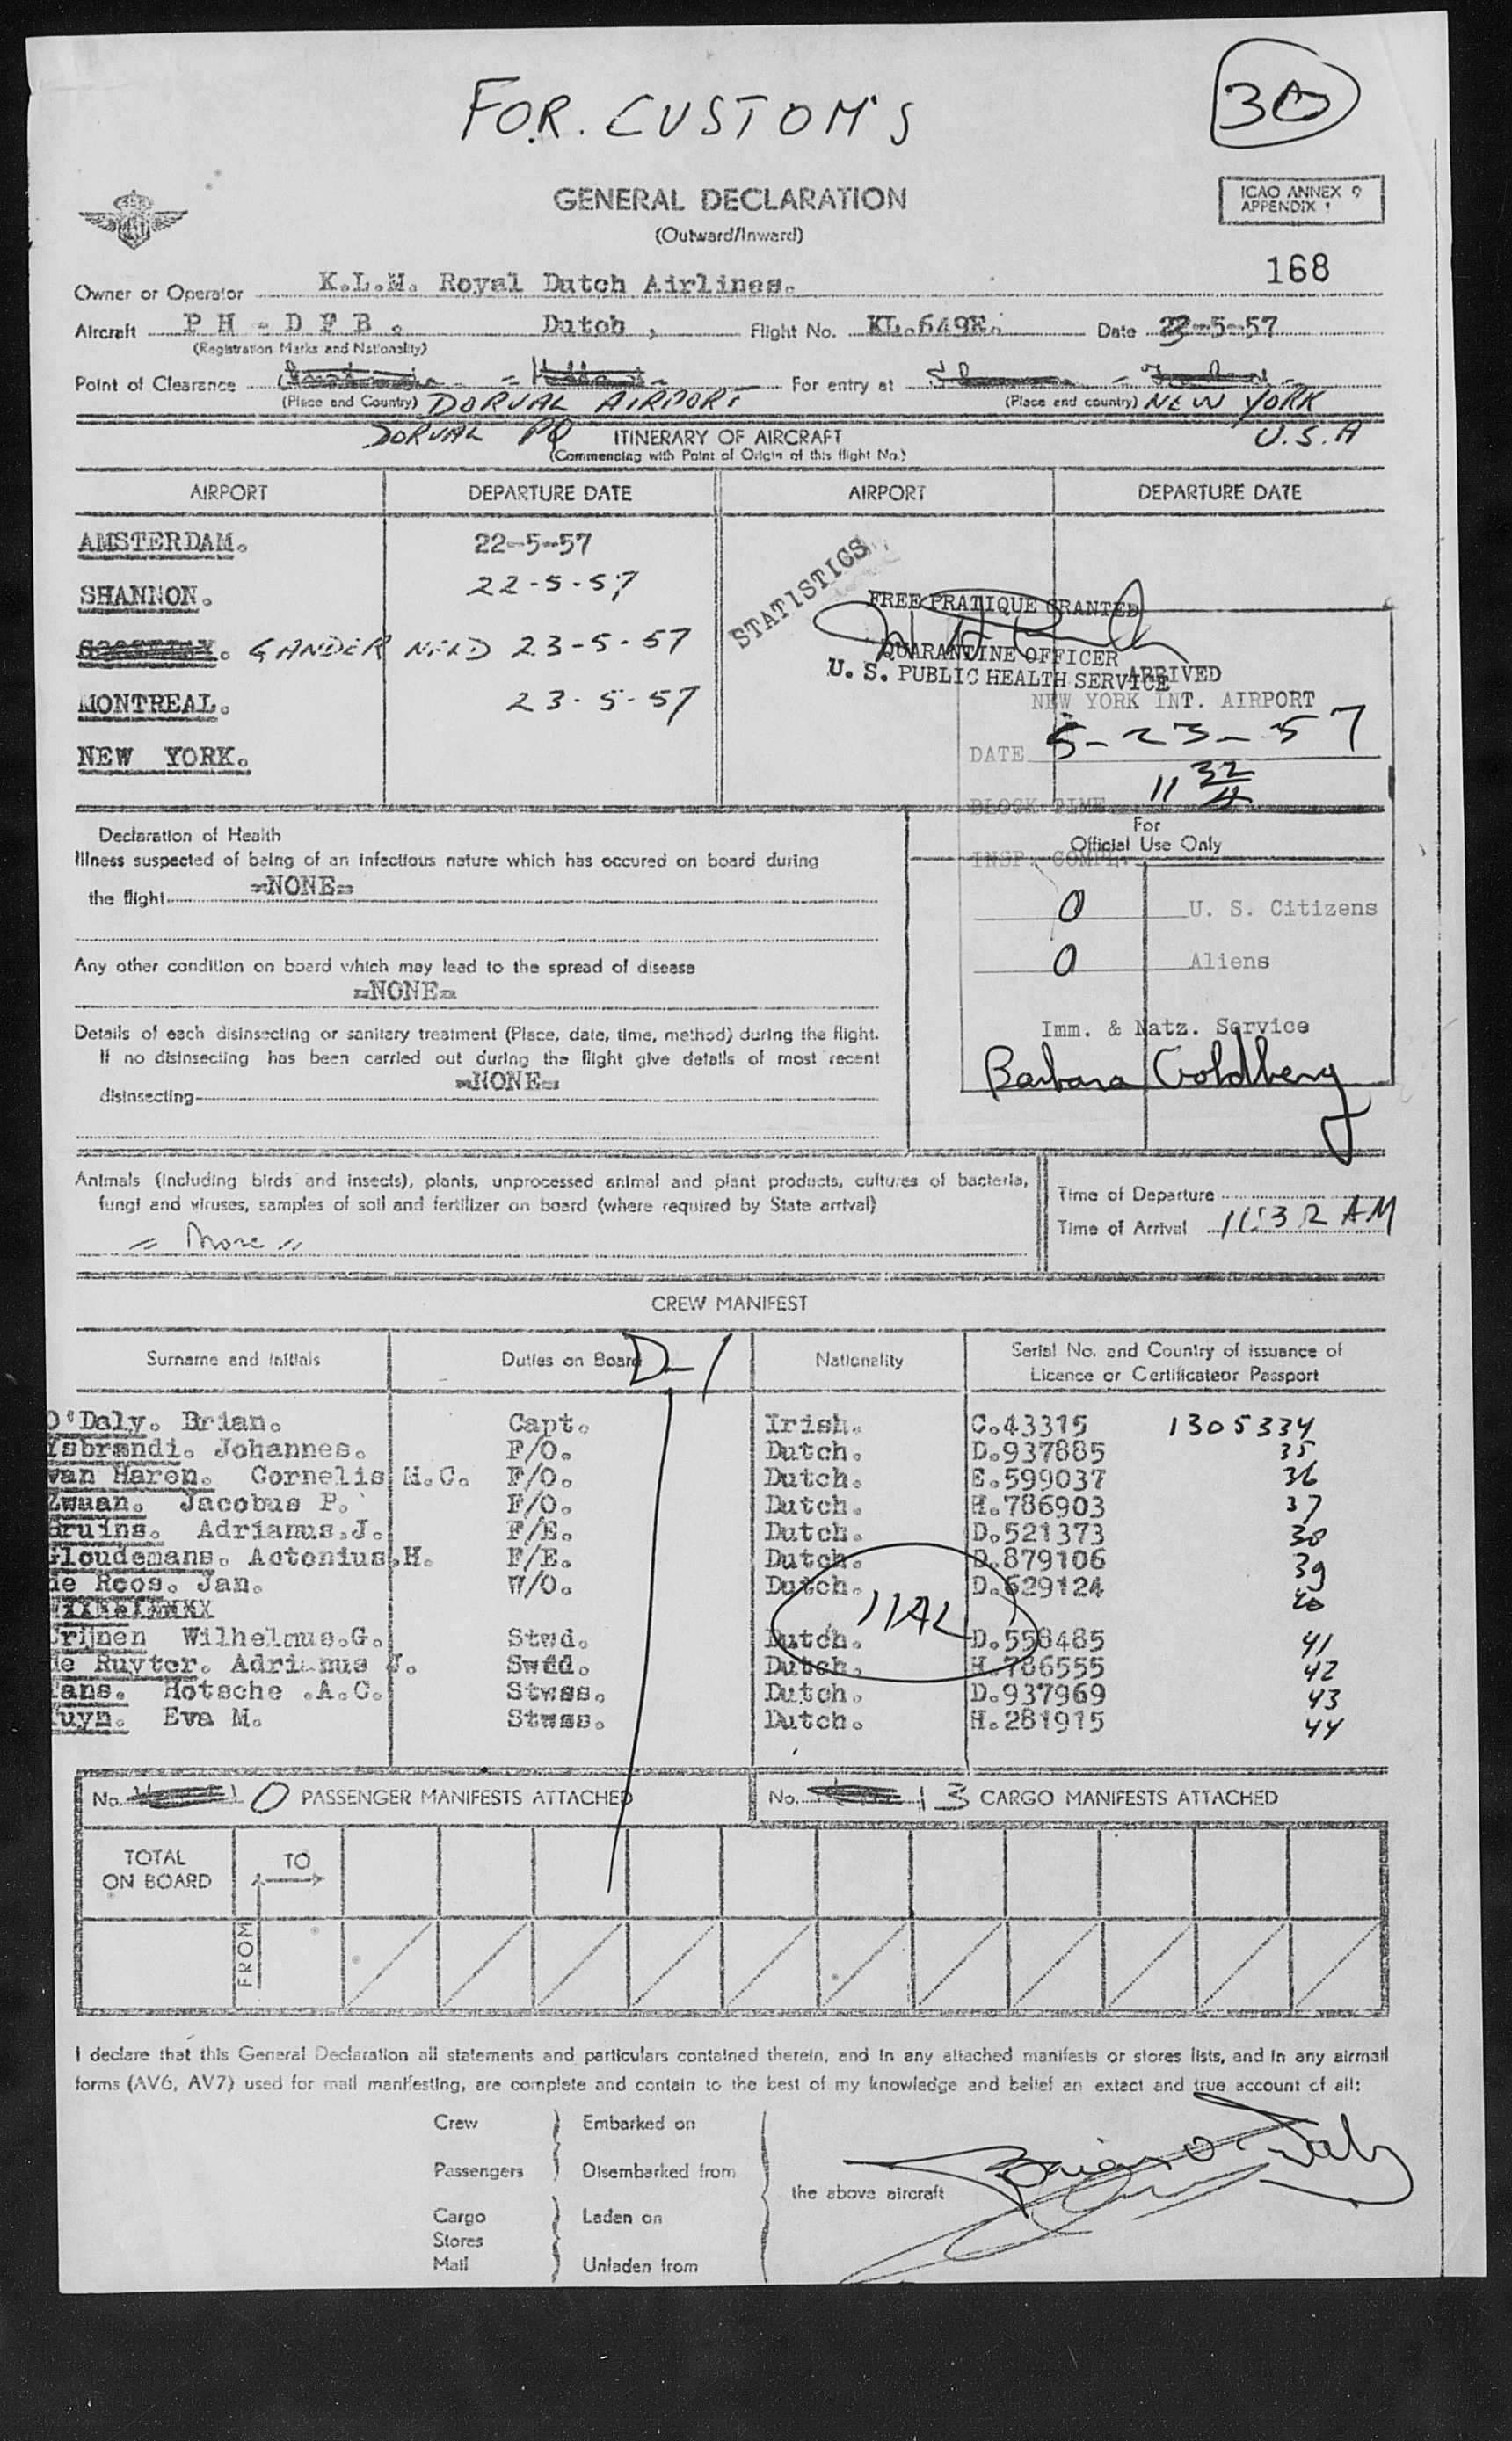 FOR. CUSTOM'S
30
GENERAL DECLARATION
(Outward/Inward)
ICAO ANNEX 9
APPENDIX 1
168
Owner or Operator K.L.M. Royal Dutch Airlines.
Aircraft P H - D F B . Dutch , Flight No. KL.649E. Date 23-5-57
(Registration Marks and Nationality)
Point of Clearance For entry at
(Place and Country) DORVAL AIRPORT (Place and country) NEW YORK
DORVAL PQ ITINERARY OF AIRCRAFT U.S.A
(Commencing with Point of Origin of this flight No.)
AIRPORT DEPARTURE DATE AIRPORT DEPARTURE DATE
AMSTERDAM. 22-5-57
SHANNON. 22-5-57
GANDER NFLD 23-5-57
MONTREAL. 23-5-57
NEW YORK.
STATISTICS
FREE PRATIQUE GRANTED
QUARANTINE OFFICER
U. S. PUBLIC HEALTH SERVICE
ARRIVED
NEW YORK INT. AIRPORT
DATE 5-23-57
BLOCK TIME 11 32/A
INSP. COMPL.
For
Official Use Only
0 U. S. Citizens
0 Aliens
Imm. & Natz. Service
Barbara Goldberg
Declaration of Health
Illness suspected of being of an infectious nature which has occured on board during
the flight =NONE=
Any other condition on board which may lead to the spread of disease
=NONE=
Details of each disinsecting or sanitary treatment (Place, date, time, method) during the flight.
If no disinsecting has been carried out during the flight give details of most recent
=NONE=
disinsecting
Animals (including birds and insects), plants, unprocessed animal and plant products, cultures of bacteria,
fungi and viruses, samples of soil and fertilizer on board (where required by State arrival)
" None "
Time of Departure
Time of Arrival 11:32 AM
CREW MANIFEST
Surname and Initials Duties on Board Nationality Serial No. and Country of issuance of
Licence or Certificateor Passport
D-1
O'Daly. Brian. Capt. Irish. C.43315 1305334
Ysbrandi. Johannes. F/O. Dutch. D.937885 35
van Haren. Cornelis M.C. F/O. Dutch. E.599037 36
Zwaan. Jacobus P. F/O. Dutch. H.786903 37
Bruins. Adrianus.J. F/E. Dutch. D.521373 38
Gloudemans. Actonius.H. F/E. Dutch. D.879106 39
de Roos. Jan. W/O. Dutch. D.629124 40
11AL
Crijnen Wilhelmus.G. Stwd. Dutch. D.558485 41
de Ruyter. Adrianus J. Swdd. Dutch. H.786555 42
Tans. Hotsche .A.C. Stwss. Dutch. D.937969 43
Tuyn. Eva M. Stwss. Dutch. H.281915 44
No. 0 PASSENGER MANIFESTS ATTACHED No. 13 CARGO MANIFESTS ATTACHED
TOTAL
ON BOARD
TO
FROM
I declare that this General Declaration all statements and particulars contained therein, and in any attached manifests or stores lists, and in any airmail
forms (AV6, AV7) used for mail manifesting, are complete and contain to the best of my knowledge and belief an extact and true account of all:
Crew Embarked on
Passengers Disembarked from
the above aircraft Brian O'Daly
Cargo Laden on
Stores
Mail Unladen from